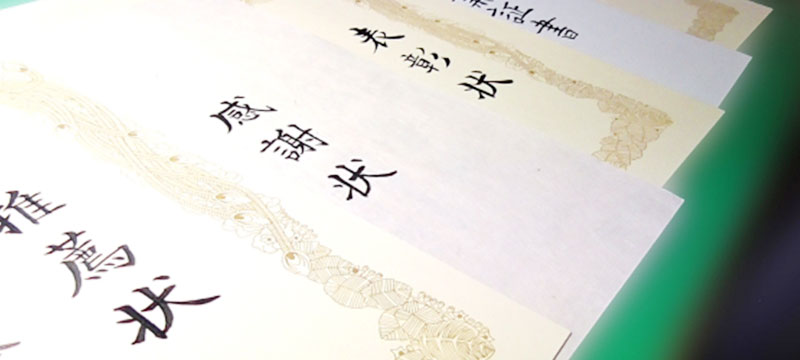 推薦状
感謝状
表彰状
証書